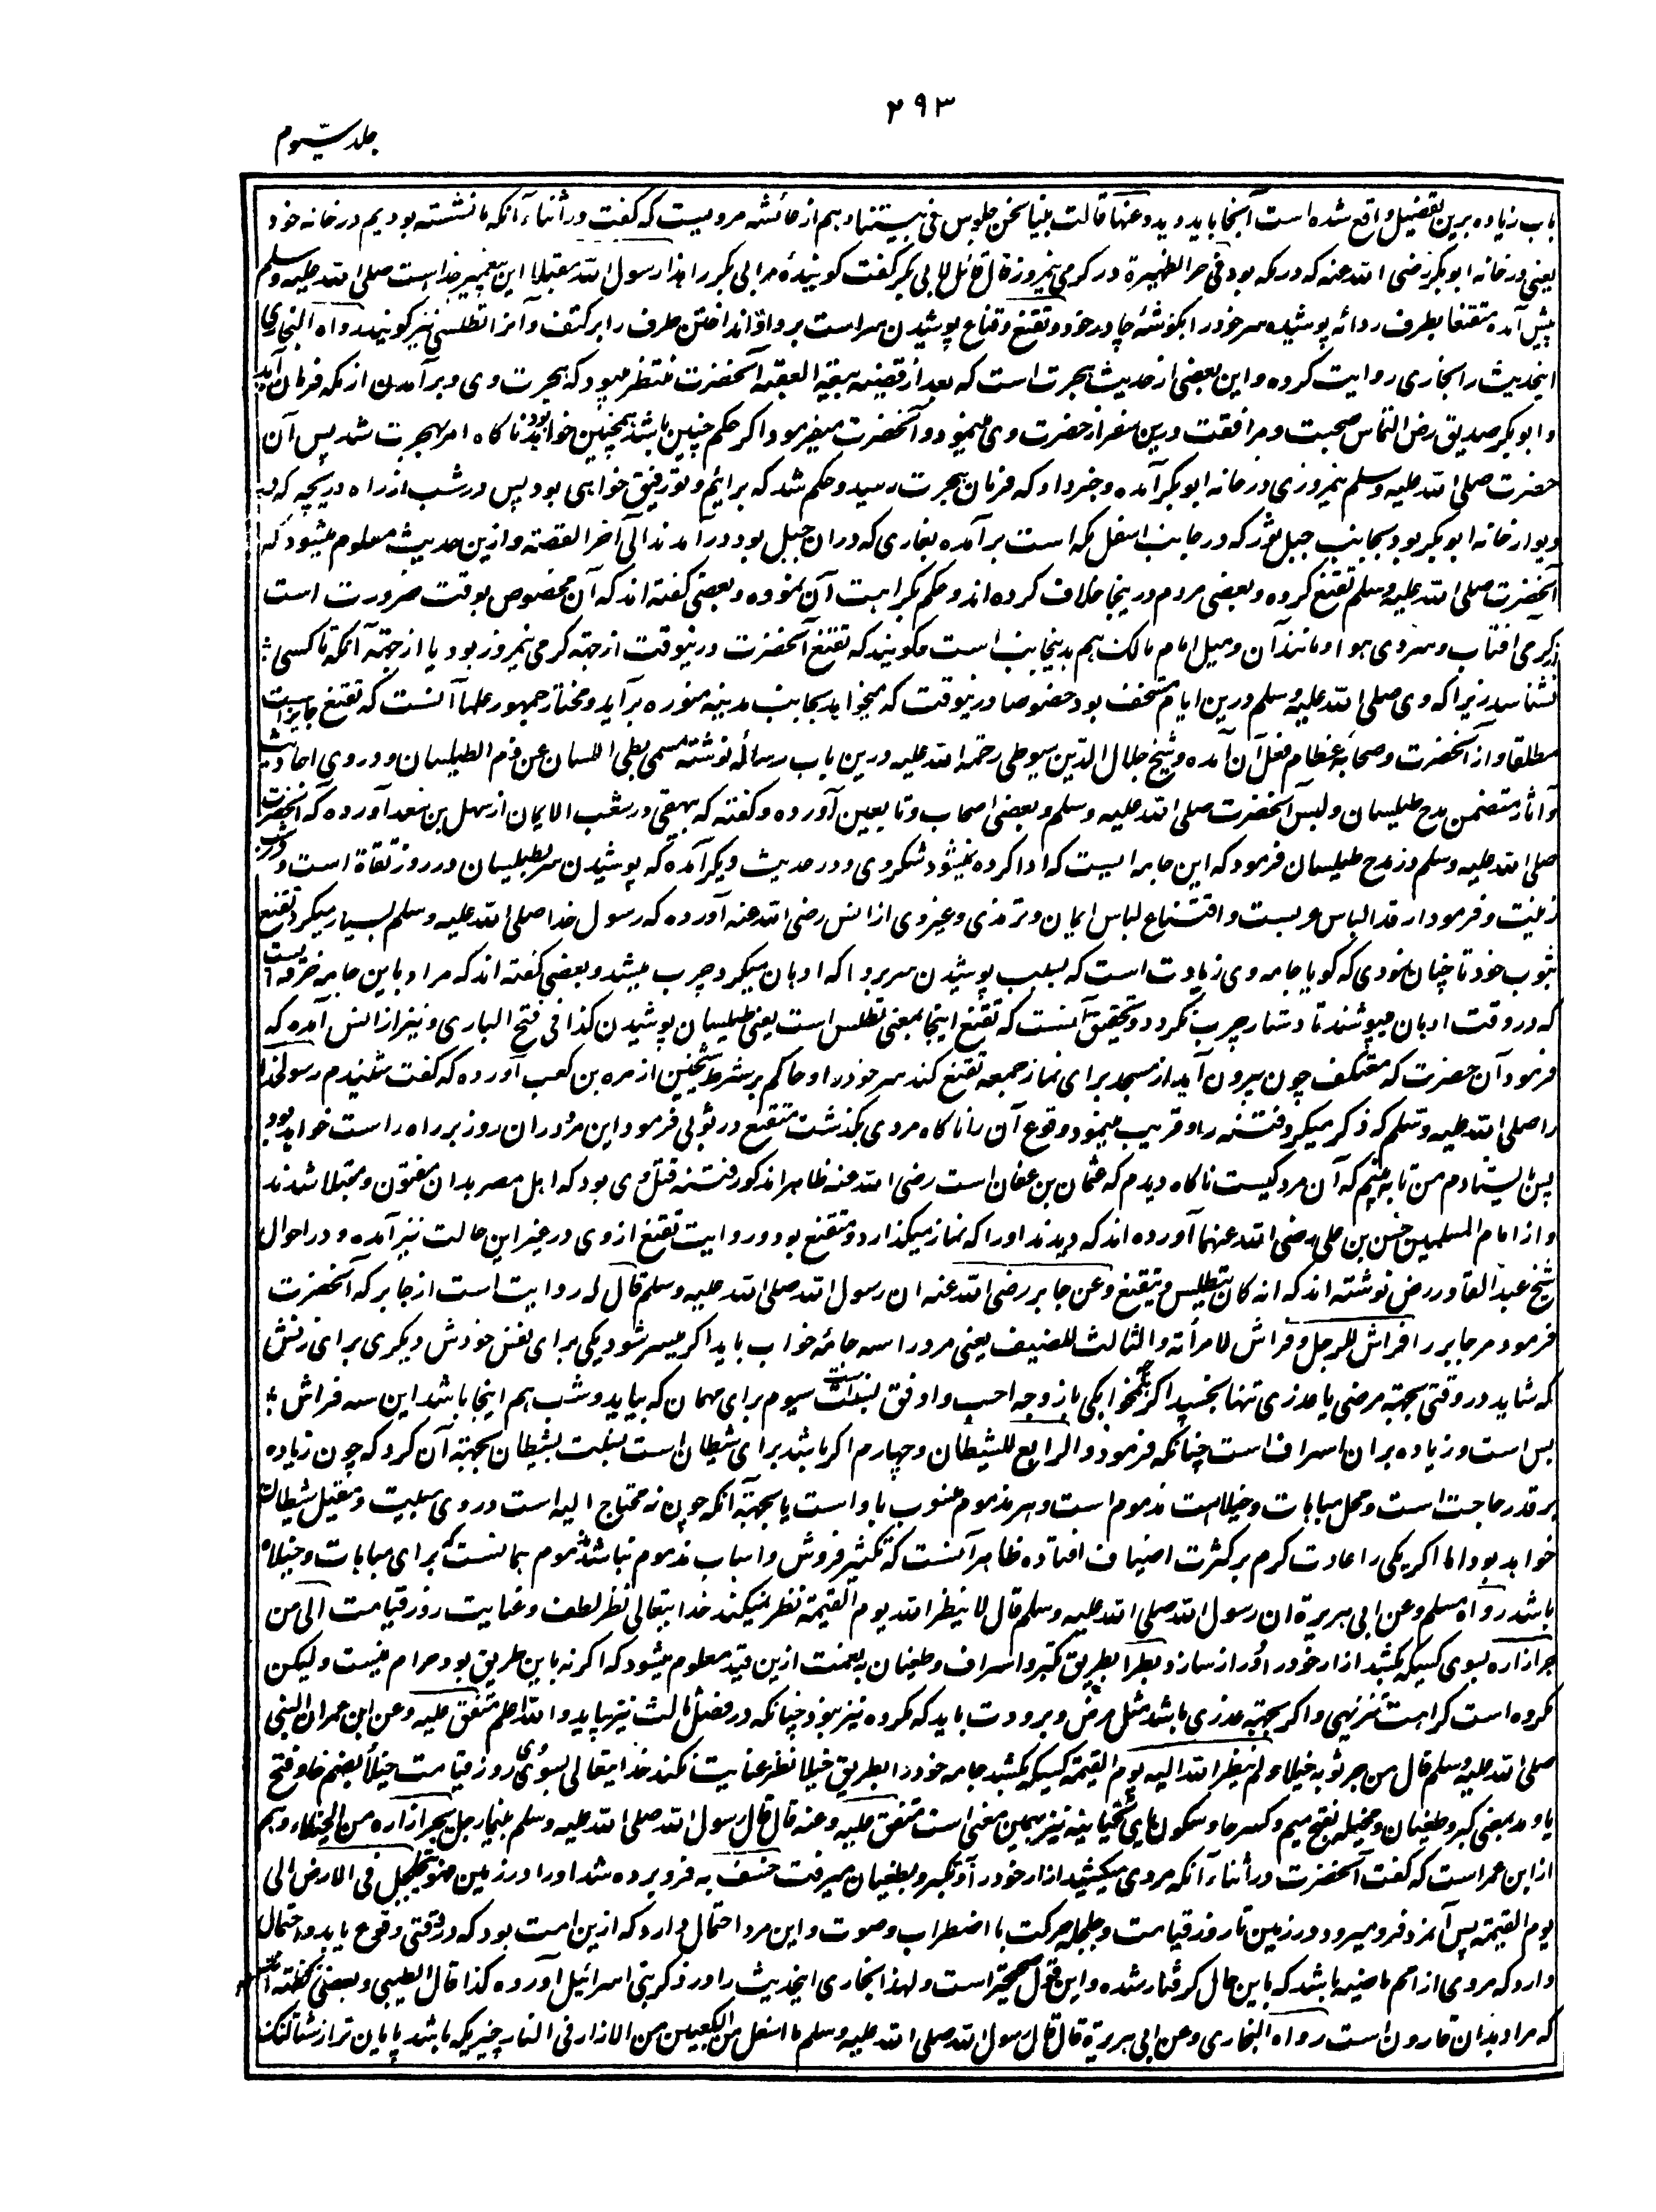 ۲۹۳
جلد سیّوم
باب زیاده برین تفضیل واقع شده است آنجا باید دید وعنها قالت بینا نحن جلوس فی بیتنا وهم از عائشه مرویست که گفت در اثناء آنکه ما نشسته بودیم در خانه خود
یعنی در خانه ابوبکر رضی الله عنه که در مکه بود فی حر الظهیرة در گرمی نیمروز قال قائل لابی بکر گفت گوینده مر ابی بکر را هذا رسول الله مقبلا این پیغمبر خداست صلی الله علیه وسلم
پیش آمده متقنعا بطرف ردائه پوشیده سر خود را بگوشۀ چادر خود و تقنع وقناع پوشیدن سر است برداو انداختن طرف را بر کتف وآنرا تطلس نیز گویند رواه البخاری
اینحدیث را بخاری روایت کرده و این بعضی از حدیث هجرت است که بعد از قضیه بیعة العقبه آنحضرت منتظر میبود که هجرت وی وبرآمدن از مکه فرمان آید
وابوبکر صدیق رض التماس صحبت ومرافقت درین سفر از حضرت وی مینمود وآنحضرت میفرمود اگر حکم چنین باشد همچنین خواهد بود ناگاه امر بهجرت شد پس آن
حضرت صلی الله علیه وسلم نیمروزی در خانه ابوبکر آمده وخبر داد که فرمان هجرت رسید وحکم شد که برائیم وتو رفیق خواهی بود پس در شب از راه دریچه که در
دیوار خانه ابوبکر بود بجانب جبل ثور که در جانب اسفل مکه است برآمده بغاری که دران جبل بود درآمدند الی آخر القصة وازین حدیث معلوم میشود که
آنحضرت صلی الله علیه وسلم تقنع کرده وبعضی مردم درینجا خلاف کرده اند وحکم بکراهت آن نموده وبعضی گفته اند که آن مخصوص بوقت ضرورت است
از گرمی آفتاب وسردی هوا ومانند آن ومیل امام مالک هم بدینجانب است ومیگویند که تقنع آنحضرت درینوقت از جهة گرمی نیمروز بود یا از جهة آنکه تا کسی
نشناسد زیرا که وی صلی الله علیه وسلم درین ایام متخفی بود خصوصا درینوقت که میخواهد بجانب مدینه منوره برآید ومختار جمهور علما آنست که تقنع جایز است
مطلقا واز آنحضرت وصحابۀ عظام فعل آن آمده وشیخ جلال الدین سیوطی رحمة الله علیه درین باب رسالۀ نوشته مسمی بطی اللسان عن ذم الطیلسان ودر وی احادیث
وآثار متضمن مدح طیلسان ولبس آنحضرت صلی الله علیه وسلم وبعضی اصحاب وتابعین آورده وگفته که بیهقی در شعب الایمان از سهل بن سعد آورده که آنحضرت
صلی الله علیه وسلم در مدح طیلسان فرمود که این جامه ایست که ادا کرده نمیشود شکر وی ودر حدیث دیگر آمده که پوشیدن سر بطیلسان در روز تقاة است ودر شب
زینت وفرمود ارتدا لباس عربست واقتناع لباس ایمان وترمذی وغیر وی از انس رضی الله عنه آورده که رسول خدا صلی الله علیه وسلم بسیار میکرد تقنع
بثوب خود تا چنان نمودی که گویا جامه وی زیادت است که بسبب پوشیدن سر بردا که ادهان میکرد چرب میشد وبعضی گفته اند که مراد باین جامه خرقه ایست
که در وقت ادهان میپوشند تا دستار چرب نگردد وتحقیق آنست که تقنع اینجا بمعنی تطلس است یعنی طیلسان پوشیدن کذا فی فتح الباری ونیز از انس آمده که
فرمود آن حضرت که معتکف چون بیرون آید از مسجد برای نماز جمعه تقنع کند سر خود را وحاکم بر شرط شیخین از مره بن کعب آورده که گفت شنیدم رسول خدا
را صلی الله علیه وسلم که ذکر میکرد فتنه را وقریب مینمود وقوع آن را ناگاه مردی بگذشت متقنع در ثوبی فرمود این مرد دران روز بر راه راست خواهد بود
پس ایستادم من تا به بینم که آن مرد کیست ناگاه دیدم که عثمان بن عفان است رضی الله عنه ظاهرا مذکور فتنه قتل وی بود که اهل مصر بدان مفتون ومبتلا شدند
واز امام المسلمین حسن بن علی رضی الله عنهما آورده اند که دیدند او را که نماز میگذارد ومتقنع بود وروایت تقنع از وی در غیر این حالت نیز آمده ودر احوال
شیخ عبد القادر رض نوشته اند که انه کان یتطیلس ویتقنع وعن جابر رضی الله عنه ان رسول الله صلی الله علیه وسلم قال له روایت است از جابر که آنحضرت
فرمود مر جابر را فراش للرجل وفراش لامرأته والثالث للضیف یعنی مرد را سه جامۀ خواب باید اگر میسر شود یکی برای نفس خودش ودیگری برای زنش
که شاید در وقتی بجهة مرضی یا عذری تنها بخسپد اگرچه همخوابگی با زوجه احب واوفق لسنت است سیوم برای مهمان که بیاید وشب هم اینجا باشد این سه فراش
بس است وزیاده بران اسراف است چنانکه فرمود والرابع للشیطان وچهارم اگر باشد برای شیطان است نسبت بشیطان بجهة آن کرد که چون زیاده
بر قدر حاجت است ومحل مباهات وخیلاست مذموم است وهر مذموم منسوب باو است یا بجهة آنکه چون نه محتاج الیه است در وی مبیت ومقیل شیطان
خواهد بود اما اگر یکی را عادت کرم بر کثرت اضیاف افتاده ظاهر آنست که تکثیر فروش واسباب مذموم نباشد مذموم همانست که برای مباهات وخیلاء
باشد رواه مسلم وعن ابی هریرة ان رسول الله صلی الله علیه وسلم قال لا ینظر الله یوم القیمة نظر نمیکند خدایتعالی نظر لطف وعنایت روز قیامت الی من
جر ازاره بسوی کسیکه بکشد ازار خود را ودراز سازد بطرا بطریق تکبر واسراف وطغیان به نعمت ازین قید معلوم میشود که اگر نه باین طریق بود حرام نیست ولیکن
مکروه است کراهت تنزیهی واگر بجهة عذری باشد مثل مرض وبرودت باید که مکروه نیز نبود چنانکه در فصل ثالث نیز بیاید والله اعلم متفق علیه وعن ابن عمر ان النبی
صلی الله علیه وسلم قال من جر ثوبه خیلاء لم ینظر الله الیه یوم القیمة کسیکه بکشد جامه خود را بطریق خیلا نظر عنایت نکند خدایتعالی بسوی وی روز قیامت خیلأ بضم خا وفتح
یا ومد بمعنی کبر وطغیان ومخیله بفتح میم وکسر خا وسکون یای تحتیانیه نیز بهمین معنی است متفق علیه وعنه قال قال رسول الله صلی الله علیه وسلم بینما رجل یجر ازاره من الخیلاء وهم
از ابن عمر است که گفت آنحضرت در اثناء آنکه مردی میکشید ازار خود را از تکبر وبطغیان میرفت خسف به فرو برده شد او را در زمین فهو یتجلجل فی الارض الی
یوم القیمة پس آنمرد فرو میرود در زمین تا روز قیامت وجلجله حرکت با اضطراب وصوت واین مرد احتمال دارد که ازین امت بود که در وقتی وقوع یابد واحتمال
دارد که مردی از امم ماضیه باشد که باین حال گرفتار شده واین قول صحیح تر است ولهذا بخاری اینحدیث را در ذکر بنی اسرائیل آورده کذا قال الطیبی وبعضی گفته اند
که مراد بدان قارون است رواه البخاری وعن ابی هریرة قال قال رسول الله صلی الله علیه وسلم ما اسفل من الکعبین من الازار فی النار چیزیکه باشد پایان تر از شتالنگ